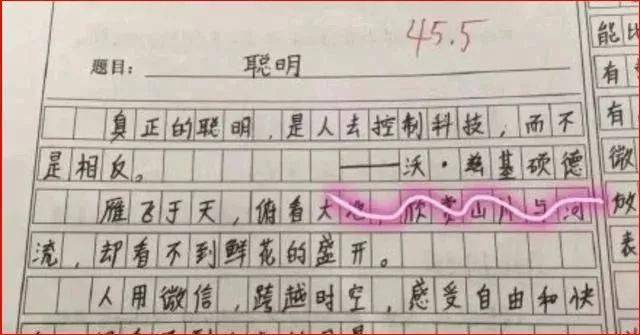 45.5
题目：聪明
真正的聪明，是人去控制科技，而不
是相反。 ——沃·兹基硕德
雁飞于天，俯看大地，欣赏山川与河
流，却看不到鲜花的盛开。
人用微信，跨越时空，感受自由和快
能比
有
有
微
放
表